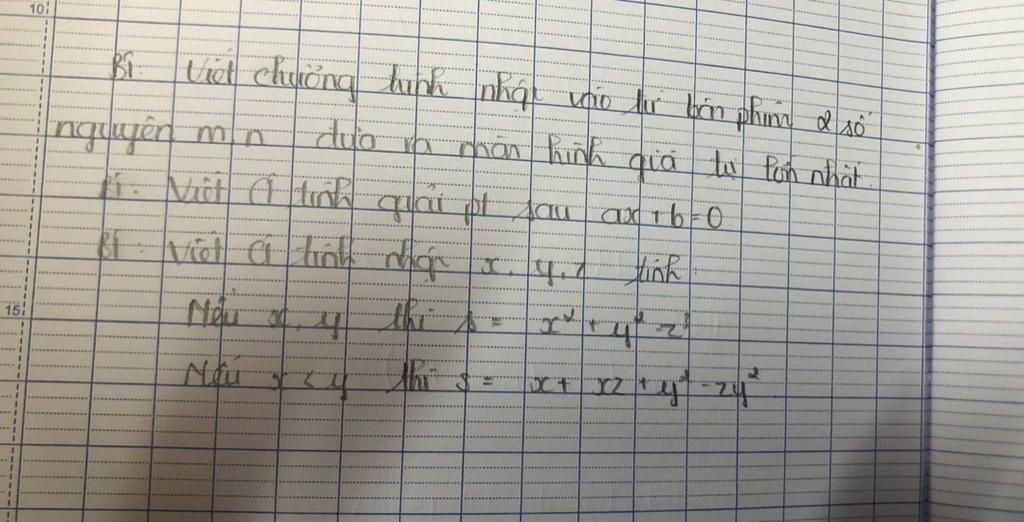 10
Bt: Viết chương trình nhập vào từ bàn phím 2 số
nguyên m, n đưa ra màn hình giá trị lớn nhất.
Bt: Viết Ct tính giải pt sau ax + b = 0
Bt: Viết Ct tính nhập x, y, z tính
15
Nếu x, y thì s = x² + y² z³
Nếu x < y thì s = x + xz + y² - zy²